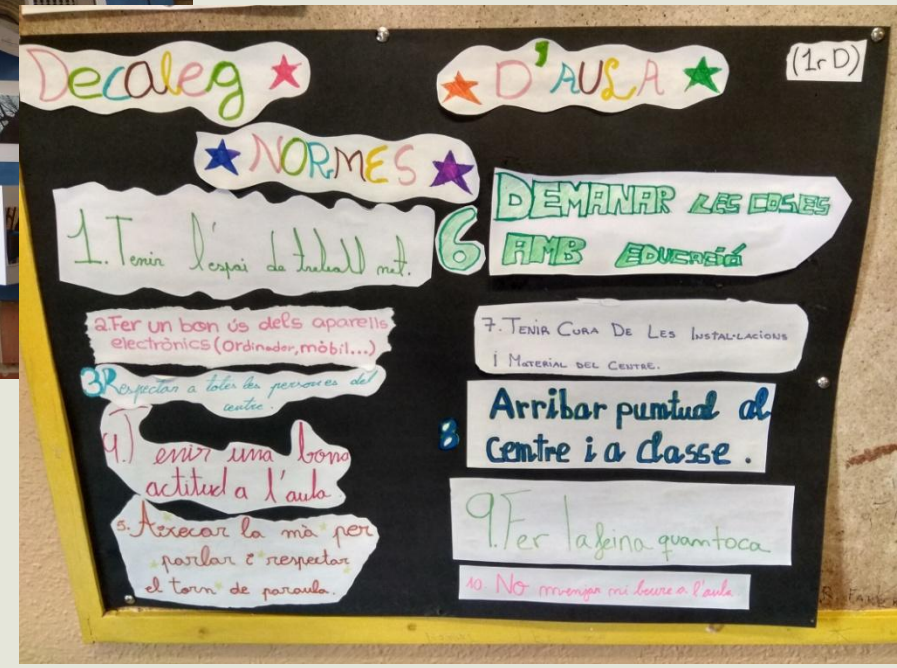 Decaleg
D'AULA
(1r D)
NORMES
1. Tenir l'espai de treball net.
2. Fer un bon ús dels aparells
electrònics (ordinador, mòbil...)
3 Respectar a totes les persones del
centre.
4. Tenir una bona
actitud a l'aula.
5. Aixecar la mà per
parlar i respectar
el torn de paraula.
6 DEMANAR LES COSES
AMB EDUCACIÓ
7. TENIR CURA DE LES INSTAL·LACIONS
I MATERIAL DEL CENTRE.
8 Arribar puntual al
centre i a classe.
9. Fer la feina quan toca
10. No menjar ni beure a l'aula